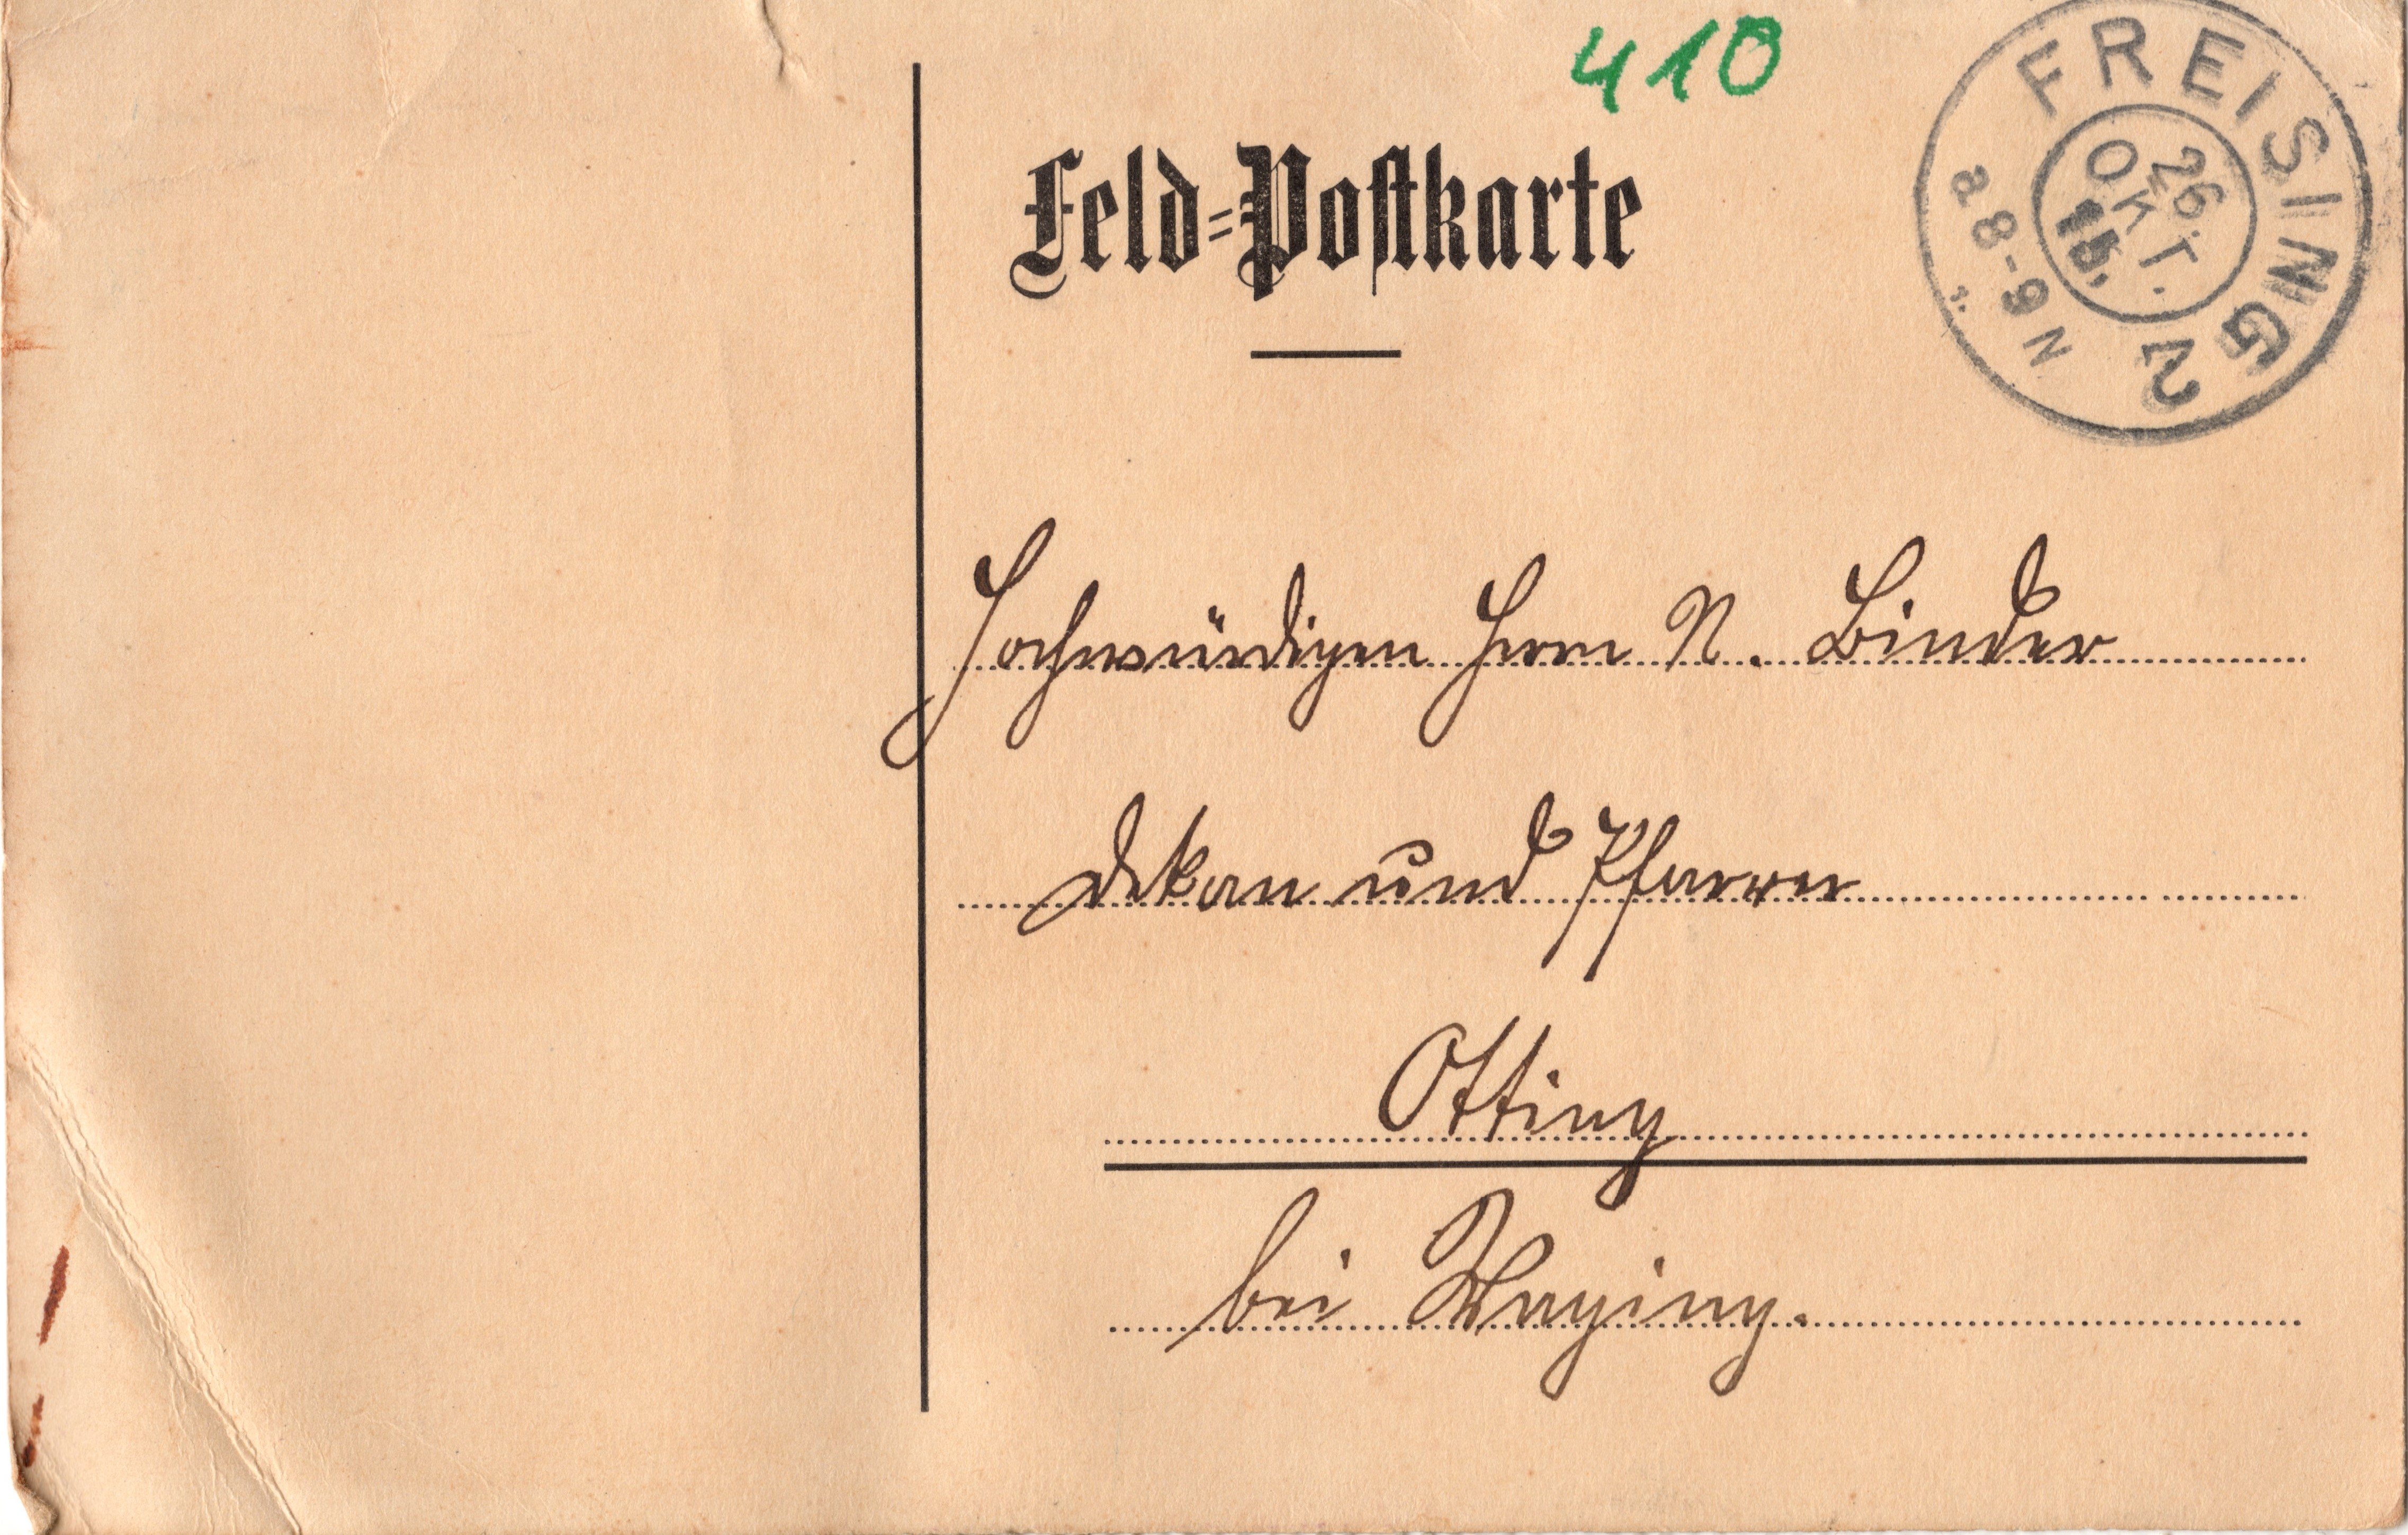 410
Feld=Postkarte
FREISING 2
26
OKT.
15.
N 8-9 a
Hochwürdigen Herrn N. Binder
Dekan und Pfarrer
Otting
bei Waging.